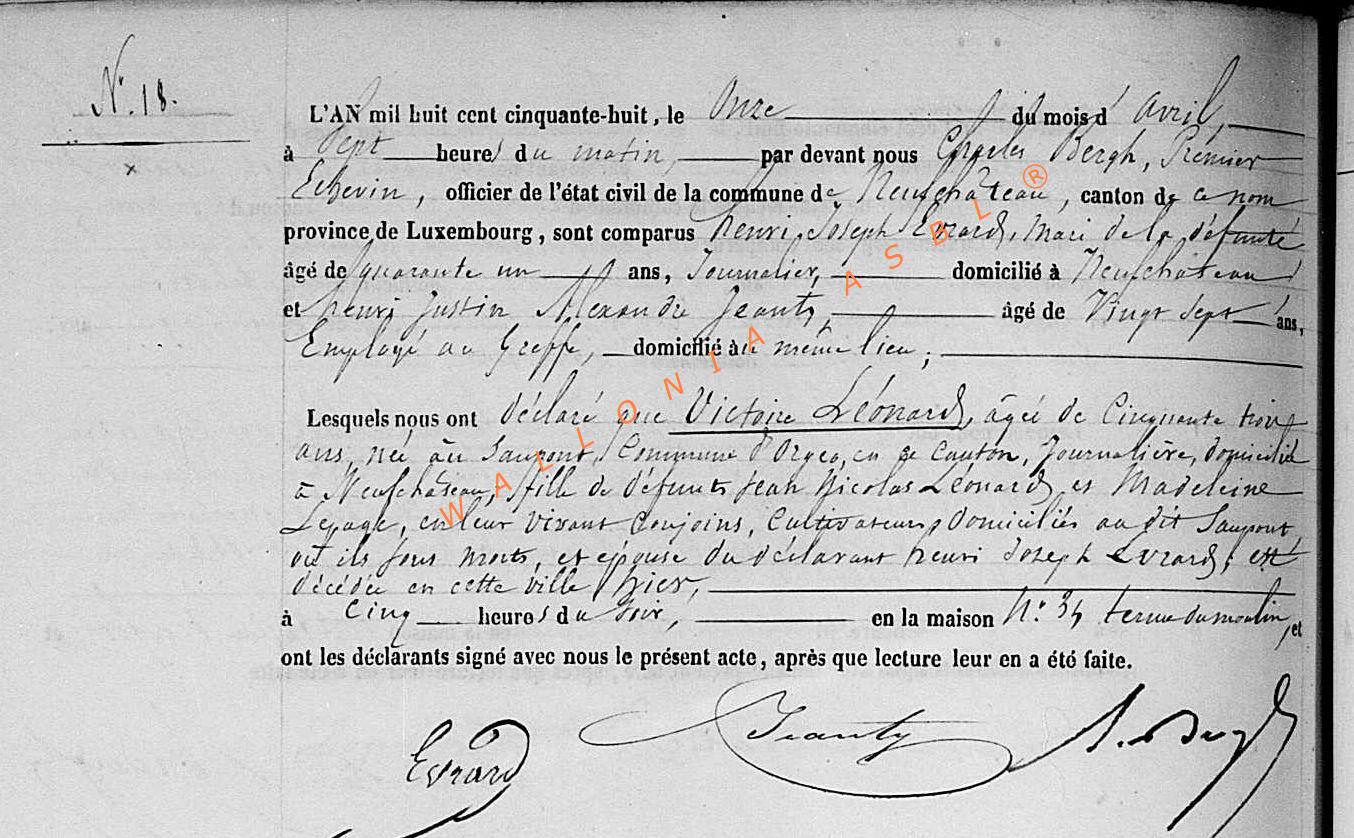 N° 18.
L'AN mil huit cent cinquante-huit, le onze du mois d'avril,
à Sept heures du matin, par devant nous Charles Bergh, Premier
Echevin, officier de l'état civil de la commune de Neufchâteau, canton de ce nom
province de Luxembourg, sont comparus henri Joseph Evrard, Mari de la défunte
âgé de quarante un ans, Journalier, domicilié à Neufchâteau
et henri Justin Alexandre Jeanty, âgé de Vingt Sept ans,
Employé au Greffe, domicilié au même lieu;
Lesquels nous ont déclaré que Victoire Léonard, âgée de Cinquante trois
ans, née au Saupont, Commune d'Orgeo, en ce Canton, Journalière, domiciliée
à Neufchâteau, fille de défunts Jean Nicolas Léonard et Madeleine
Lepage, en leur vivant Conjoins, Cultivateurs, Domiciliés au dit Saupont
où ils sont morts, et épouse du déclarant henri Joseph Evrard, est
décédée en cette ville hier,
à Cinq heures du soir, en la maison N° 34 terme du moulin, et
ont les déclarants signé avec nous le présent acte, après que lecture leur en a été faite.
Evrard Jeanty
WALLONIA ASBL ®